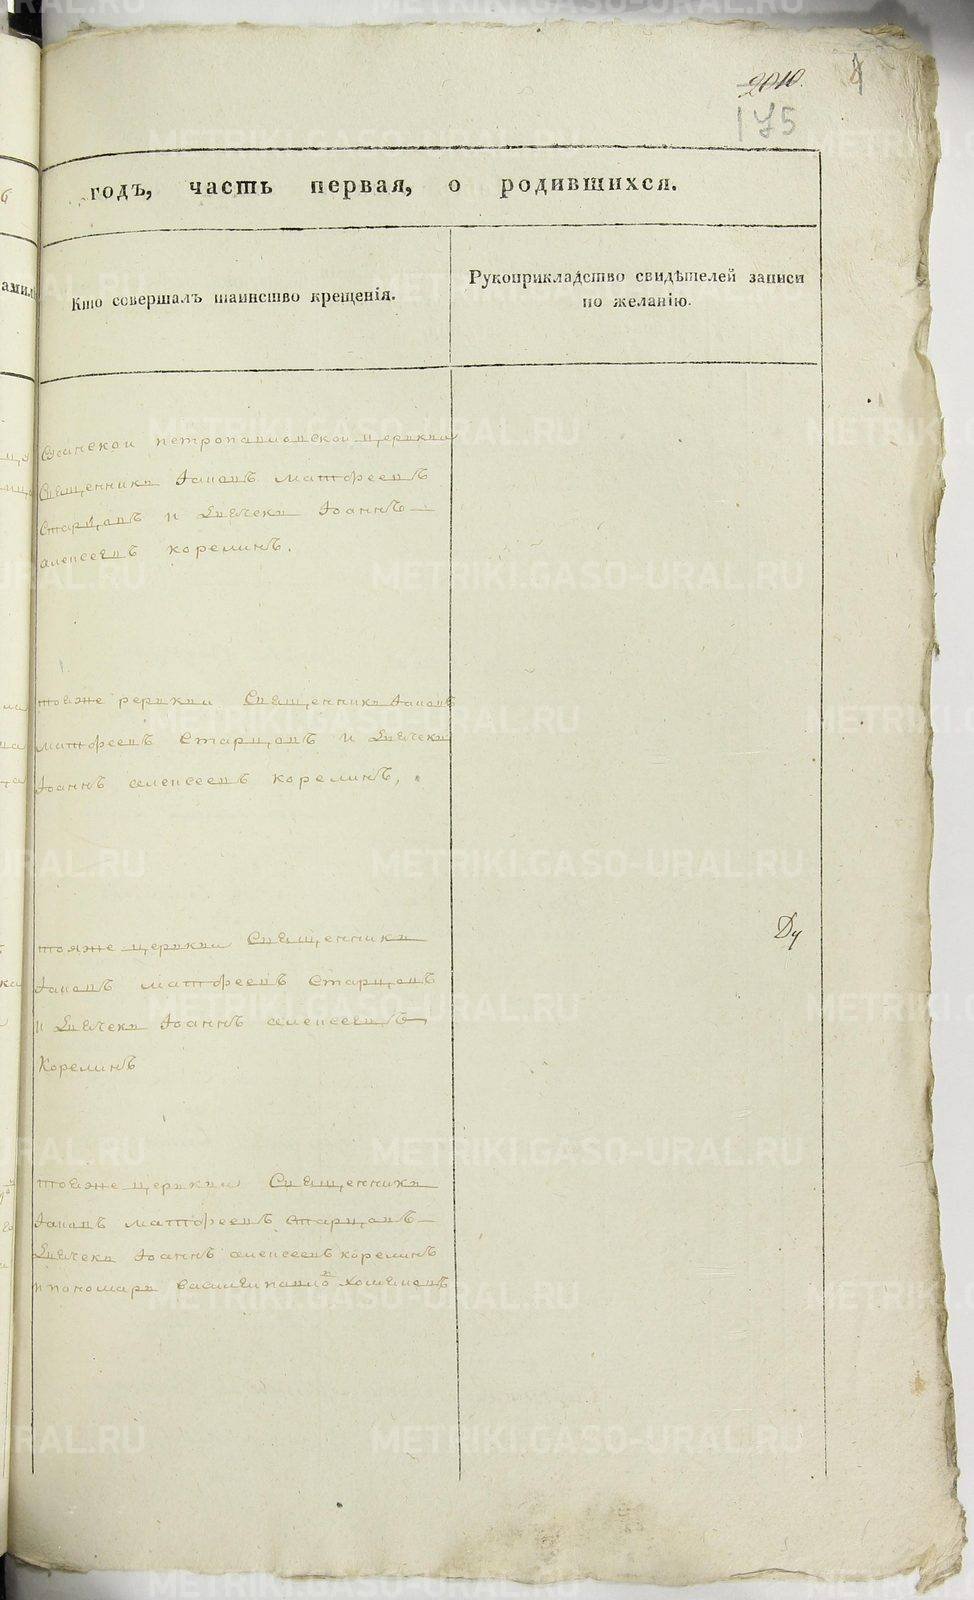 2010.
175
годъ, часть первая, о родившихся.
Кто совершалъ таинство крещенія.
Рукоприкладство свидѣтелей записи
по желанію.
петропавловской церкви
Священникъ Іаковъ матфеевъ
Старцовъ и Іоаннъ
алексеевъ корелинъ.
тояже церкви Священникъ Іаковъ
матфеевъ Старцовъ и
Іоаннъ алексеевъ корелинъ,
тояже церкви Священникъ
Іаковъ матфеевъ Старцовъ
и Іоаннъ алексеевъ
Корелинъ
тояже церкви Священникъ
Іаковъ матфеевъ Старцовъ
Іоаннъ алексеевъ корелинъ
и пономарь василеи
METRIKI.GASO-URAL.RU